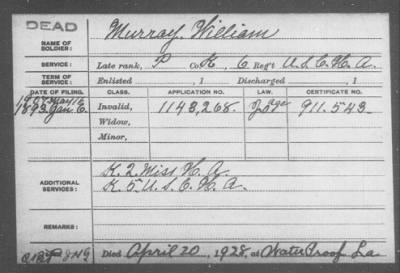 DEAD
NAME OF SOLDIER: Murray William
SERVICE: Late rank, P Co. K, 6 Reg't U.S.C.H.A.
TERM OF SERVICE: Enlisted , 1 Discharged , 1
DATE OF FILING. CLASS. APPLICATION NO. LAW. CERTIFICATE NO.
May 16
1893 Jan. 6. Invalid, 1143,268. 911.543.
Widow,
Minor,
ADDITIONAL SERVICES: K. 2. Miss H. A.
K 5. U. S. C. H. A.
REMARKS:
Died April 20, 1928, at Water Proof La